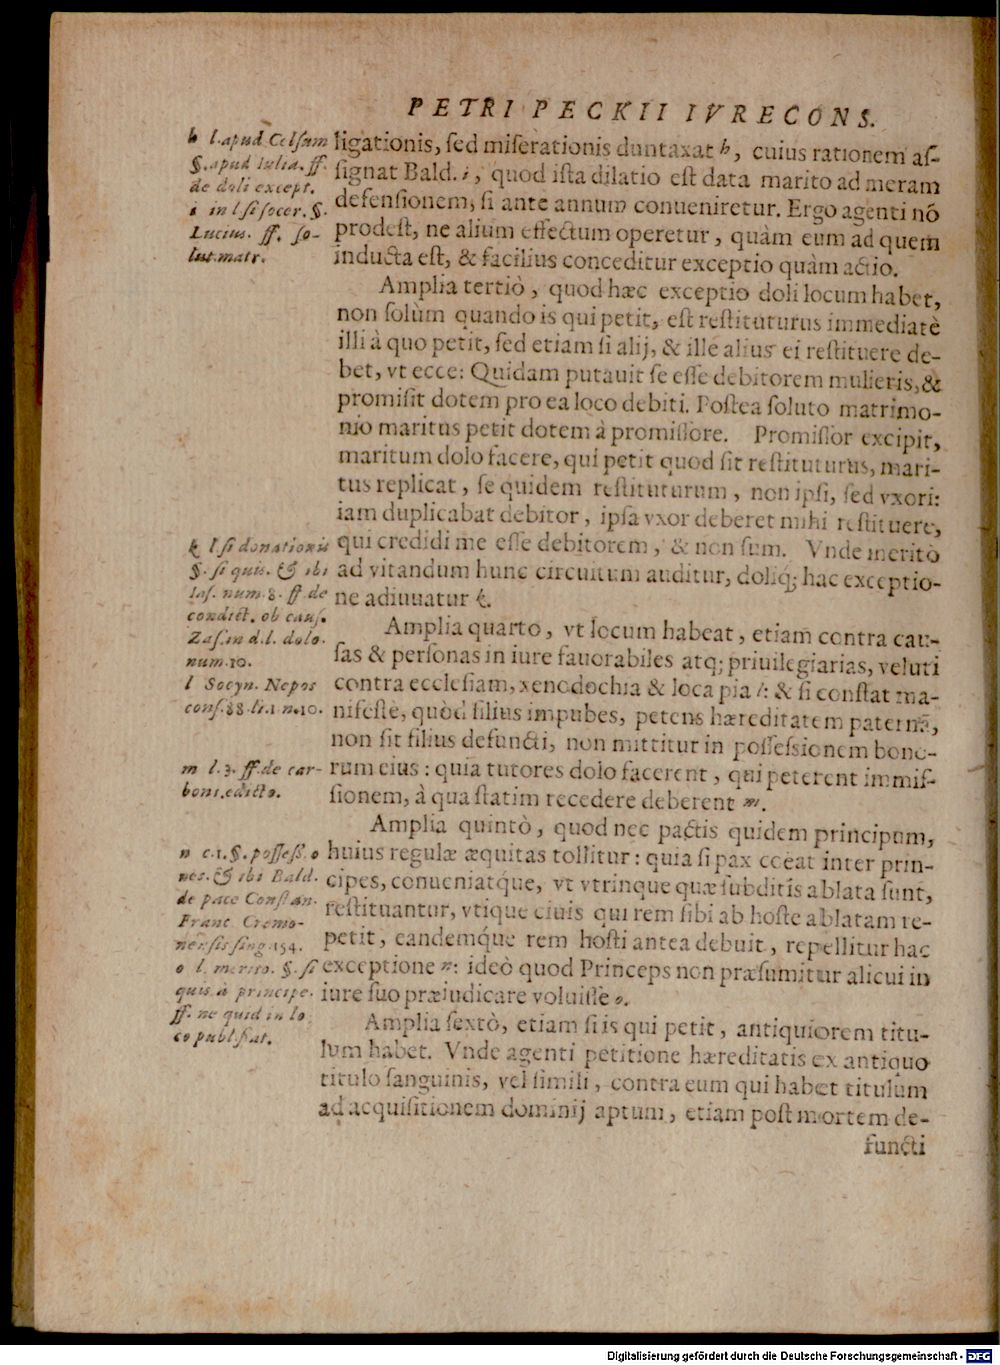 PETRI PECKII IVRECONS.
h l. apud Celsum
§. apud Iulia. ff.
de doli except.
i in l si socer. §.
Lucius. ff. so-
lut. matr.
ligationis, sed miserationis duntaxat h, cuius rationem as-
signat Bald. i, quod ista dilatio est data marito ad meram
defensionem, si ante annum conueniretur. Ergo agenti nō
prodest, ne alium effectum operetur, quàm eum ad quem
inducta est, & facilius conceditur exceptio quàm actio.
Amplia tertiò, quod hæc exceptio doli locum habet,
non solùm quando is qui petit, est restituturus immediatè
illi à quo petit, sed etiam si alij, & ille alius ei restituere de-
bet, vt ecce: Quidam putauit se esse debitorem mulieris, &
promisit dotem pro ea loco debiti. Postea soluto matrimo-
nio maritus petit dotem à promissore. Promissor excipit,
maritum dolo facere, qui petit quod sit restituturus, mari-
tus replicat, se quidem restituturum, non ipsi, sed vxori:
iam duplicabat debitor, ipsa vxor deberet mihi restituere,
qui credidi me esse debitorem, & non sum. Vnde meritò
ad vitandum hunc circuitum auditur, doliq; hac exceptio-
ne adiuuatur k.
k l si donationis
§. si quis. & ibi
Ias. num. 8. ff de
condict. ob caus.
Zas. in d. l. dolo.
num. 10.
l Socyn. Nepos
cons. 88. li. 1 n. 10.
Amplia quarto, vt locum habeat, etiam contra cau-
sas & personas in iure fauorabiles atq; priuilegiarias, veluti
contra ecclesiam, xenodochia & loca pia l: & si constat ma-
nifeste, quòd filius impubes, petens hæreditatem paternā,
non sit filius defuncti, non mittitur in possessionem bono-
rum eius: quia tutores dolo facerent, qui peterent immis-
sionem, à qua statim recedere deberent m.
m l. 3. ff. de car-
boni. edicto.
Amplia quintò, quod nec pactis quidem principum,
huius regulæ æquitas tollitur: quia si pax coeat inter prin-
cipes, conueniatq́ue, vt vtrinque quæ subditis ablata sunt,
restituantur, vtique ciuis qui rem sibi ab hoste ablatam re-
petit, eandemq́ue rem hosti antea debuit, repellitur hac
exceptione n: ideò quod Princeps non præsumitur alicui in
iure suo præiudicare voluisse o.
n c. 1. §. possess. o
nes. & ibi Bald.
de pace Constan.
Franc Cremo-
nensis sing. 154.
o l. merito. §. si
quis. à principe.
ff. ne quid in lo
co publ. fiat.
Amplia sextò, etiam si is qui petit, antiquiorem titu-
lum habet. Vnde agenti petitione hæreditatis ex antiquo
titulo sanguinis, vel simili, contra eum qui habet titulum
ad acquisitionem dominij aptum, etiam post mortem de-
functi
Digitalisierung gefördert durch die Deutsche Forschungsgemeinschaft - DFG